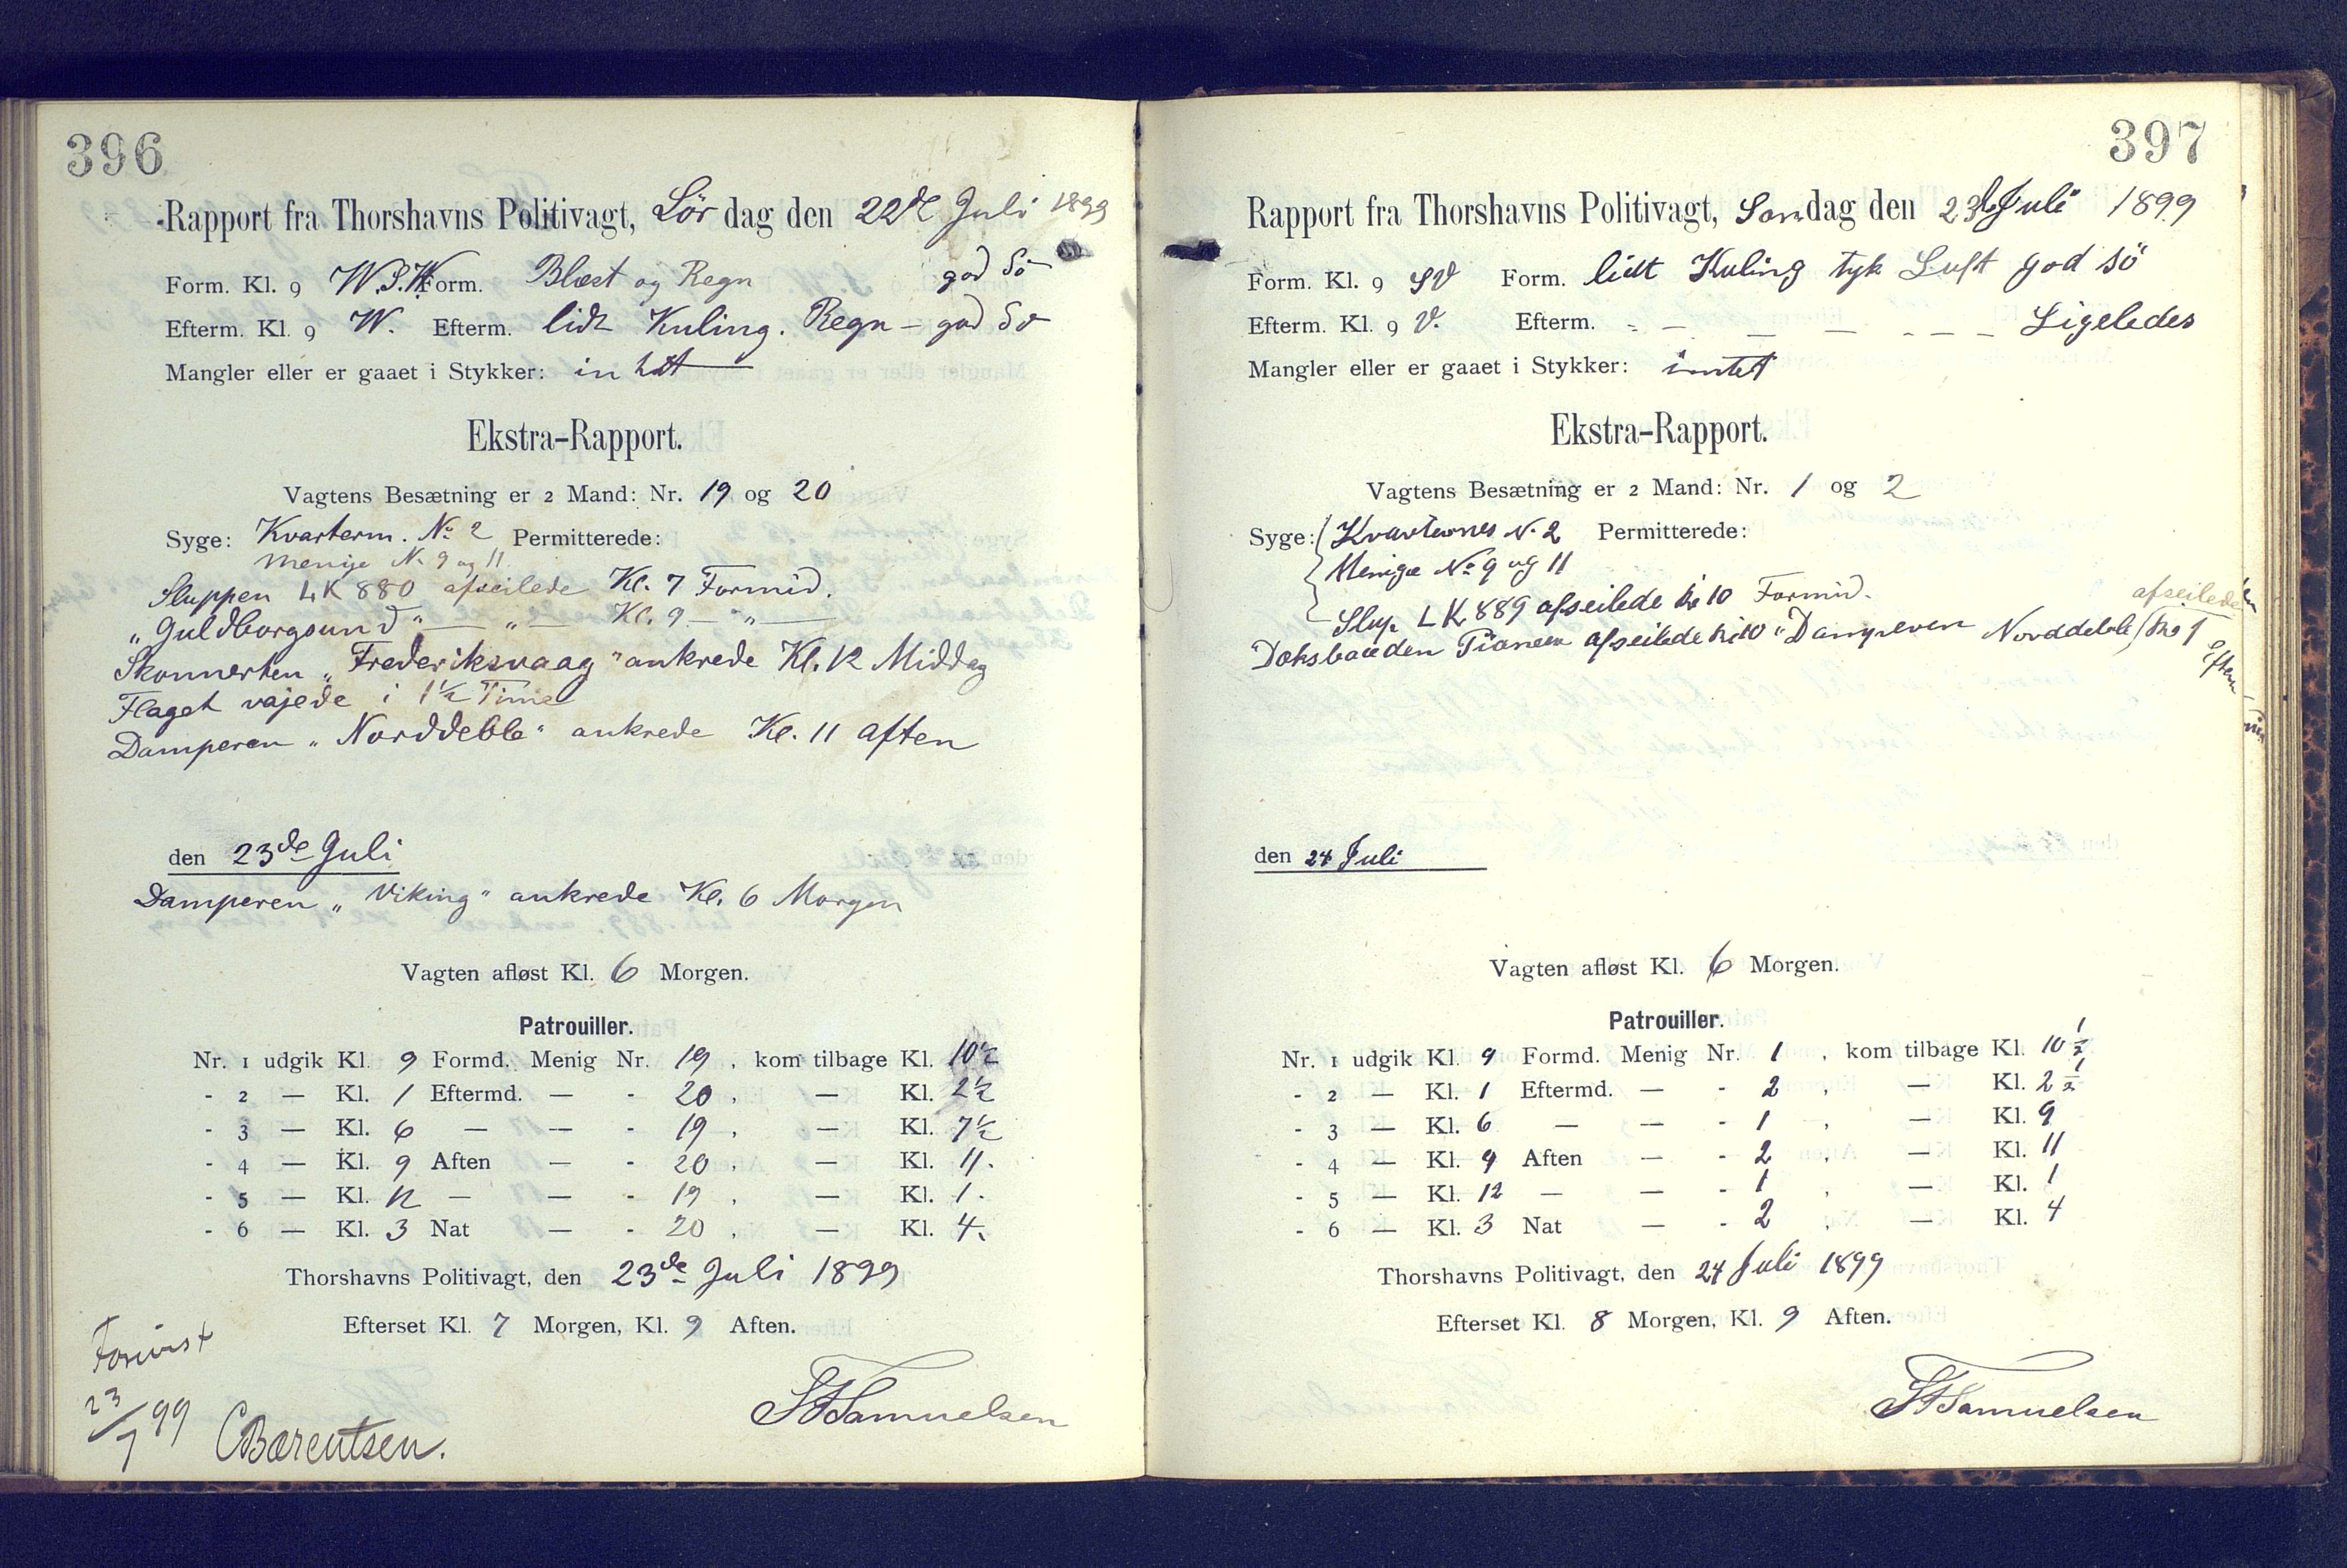 396
Rapport fra Thorshavns Politivagt, Lör dag den 22de Juli 1899
Form. Kl. 9 W.S.W. Form. Blæst og Regn god Sö
Efterm. Kl. 9 W. Efterm. lidt Kuling. Regn – god Sö
Mangler eller er gaaet i Stykker: intet
Ekstra-Rapport.
Vagtens Besætning er 2 Mand: Nr. 19 og 20
Syge: Kvarterm. No 2 Permitterede:
Menige N. 9 og 11
Sluppen LK 880 afseilede Kl. 7 Formid.
„Guldborgsund" — „ — Kl. 9 — „ —
Skonnerten „Frederiksvaag" ankrede Kl. 12 Middag
Flaget vajede i 1½ Time
Damperen „Norddeble" ankrede Kl. 11 aften
den 23de Juli
Damperen „Viking" ankrede Kl. 6 Morgen
Vagten afløst Kl. 6 Morgen.
Patrouiller.
Nr. 1 udgik Kl. 9 Formd. Menig Nr. 19, kom tilbage Kl. 10½
- 2 — Kl. 1 Eftermd. — - 20, — Kl. 2½
- 3 — Kl. 6 — — - 19, — Kl. 7½
- 4 — Kl. 9 Aften — - 20, — Kl. 11.
- 5 — Kl. 12 — — - 19, — Kl. 1.
- 6 — Kl. 3 Nat — - 20, — Kl. 4.
Thorshavns Politivagt, den 23de Juli 1899
Efterset Kl. 7 Morgen, Kl. 9 Aften.
Forevist
23/7 99
CBærentsen.
Samuelsen
397
Rapport fra Thorshavns Politivagt, Søndag den 23 Juli 1899
Form. Kl. 9 SV Form. lidt Kuling tyk Luft god sö
Efterm. Kl. 9 V. Efterm. - — — — - – – — Ligeledes
Mangler eller er gaaet i Stykker: intet
Ekstra-Rapport.
Vagtens Besætning er 2 Mand: Nr. 1 og 2
Syge: Permitterede:
N. 2
Menige No 9 og 11
Slup LK 889 afseilede kl 10 Formid.
afseilede
afseilede kl 10 Damperen Norddeble kl 9
Eftm
den 24 Juli
Vagten afløst Kl. 6 Morgen.
Patrouiller.
Nr. 1 udgik Kl. 9 Formd. Menig Nr. 1, kom tilbage Kl. 10½
- 2 — Kl. 1 Eftermd. — - 2, — Kl. 2½
- 3 — Kl. 6 — — - 1, — Kl. 9
- 4 — Kl. 9 Aften — - 2, — Kl. 11
- 5 — Kl. 12 — — - 1, — Kl. 1
- 6 — Kl. 3 Nat — - 2, — Kl. 4
Thorshavns Politivagt, den 24 Juli 1899
Efterset Kl. 8 Morgen, Kl. 9 Aften.
Samuelsen